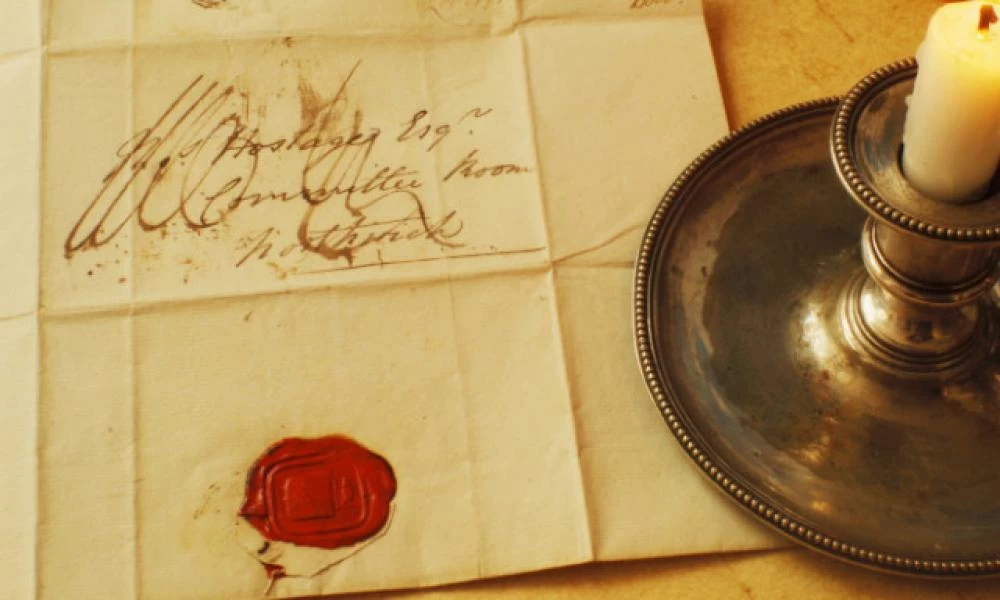 Hostage Esqr.
Committee Room
Northwich